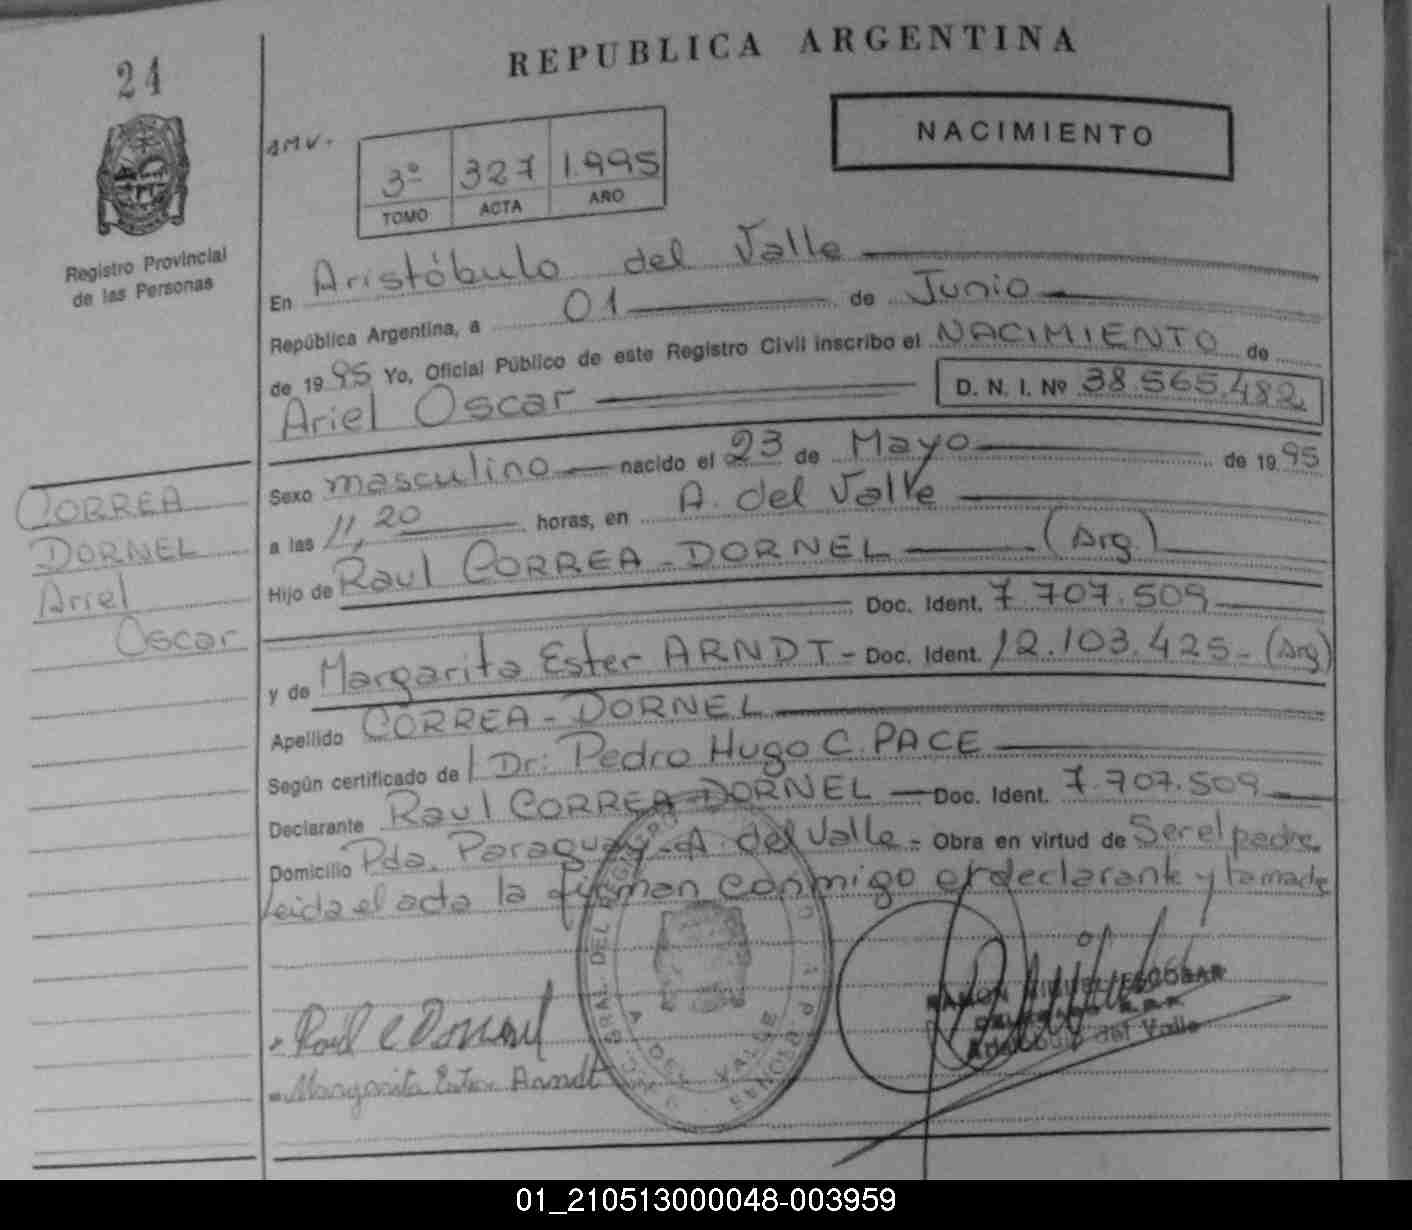 24
REPUBLICA ARGENTINA
NACIMIENTO
AMV.
3º 327 1.995
TOMO ACTA AÑO
Registro Provincial
de las Personas
En Aristóbulo del Valle
República Argentina, a 01 de Junio
de 1995 Yo, Oficial Público de este Registro Civil inscribo el NACIMIENTO de
Ariel Oscar D. N. I. Nº 38.565.482
Sexo masculino nacido el 23 de Mayo de 1995
a las 11,20 horas, en A. del Valle
Hijo de Raul CORREA-DORNEL (Arg.)
Doc. Ident. 7.707.509
y de Margarita Ester ARNDT - Doc. Ident. 12.103.425- (Arg)
Apellido CORREA-DORNEL
Según certificado de l Dr: Pedro Hugo C. PACE
Declarante Raul CORREA-DORNEL Doc. Ident. 7.707.509
Domicilio Pda. Paraguay-A. del Valle- Obra en virtud de Ser el padre.
Leida el acta la firman conmigo el declarante y la madre
CORREA
DORNEL
Ariel
Oscar
Raul C Dornel
Margarita Ester Arndt
A. DEL VALLE
RAMON MIGUEL ESCOBAR
Aristóbulo del Valle
01_210513000048-003959